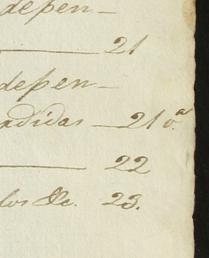 depen–
21
depen–
adidas — 21 v.ª
22
los &c. 23.